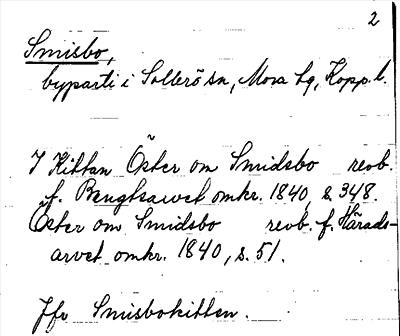 2
Smisbo,
byparti i Sollerö sn, Mora tg, Kopp. l.
I Kittan Öster om Smidsbo revb.
f. Bengtsarvet omkr. 1840, s. 348.
Öster om Smidsbo revb. f. Härads-
arvet omkr. 1840, s. 51.
Jfr Smisbokittan.